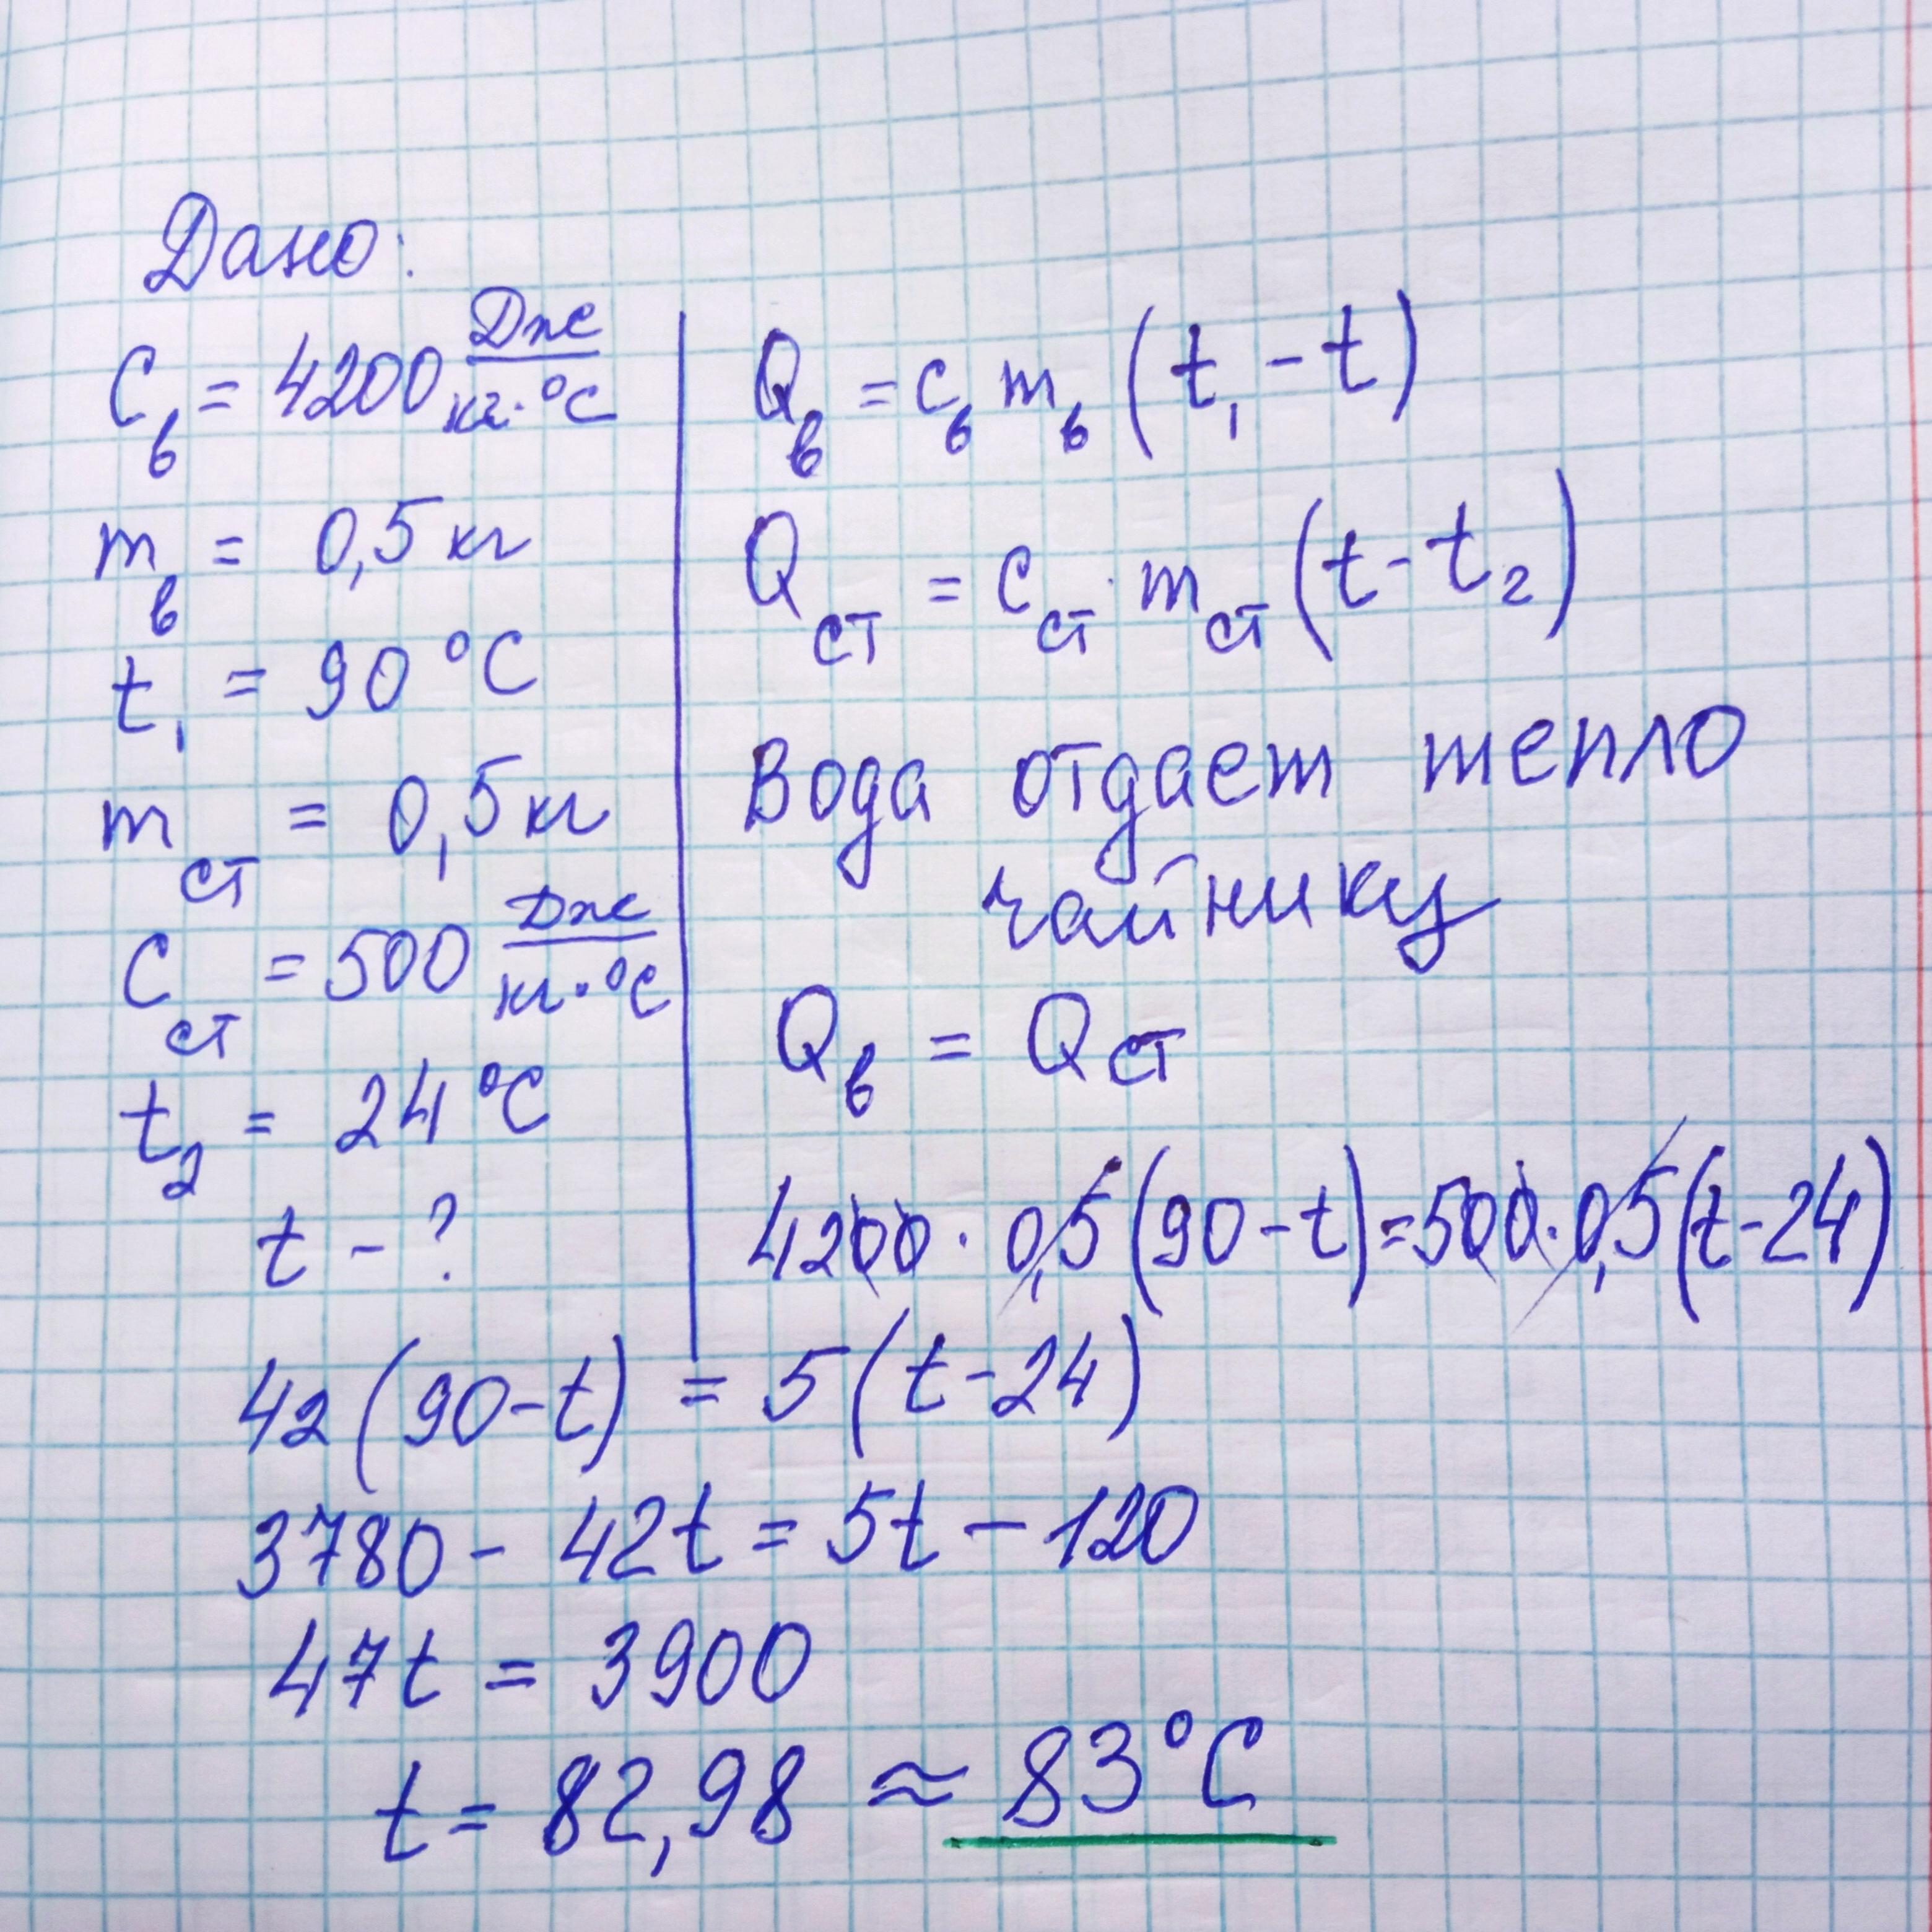 Дано:
C_в = 4200 Дж/кг·°C
m_в = 0,5 кг
t₁ = 90 °C
m_ст = 0,5 кг
C_ст = 500 Дж/кг·°C
t₂ = 24 °C
t - ?
Q_в = c_в m_в (t₁ - t)
Q_ст = c_ст · m_ст (t - t₂)
Вода отдает тепло
чайнику
Q_в = Q_ст
4200 · 0,5 (90 - t) = 500 · 0,5 (t - 24)
42 (90 - t) = 5 (t - 24)
3780 - 42t = 5t - 120
47t = 3900
t = 82,98 ≈ 83 °C